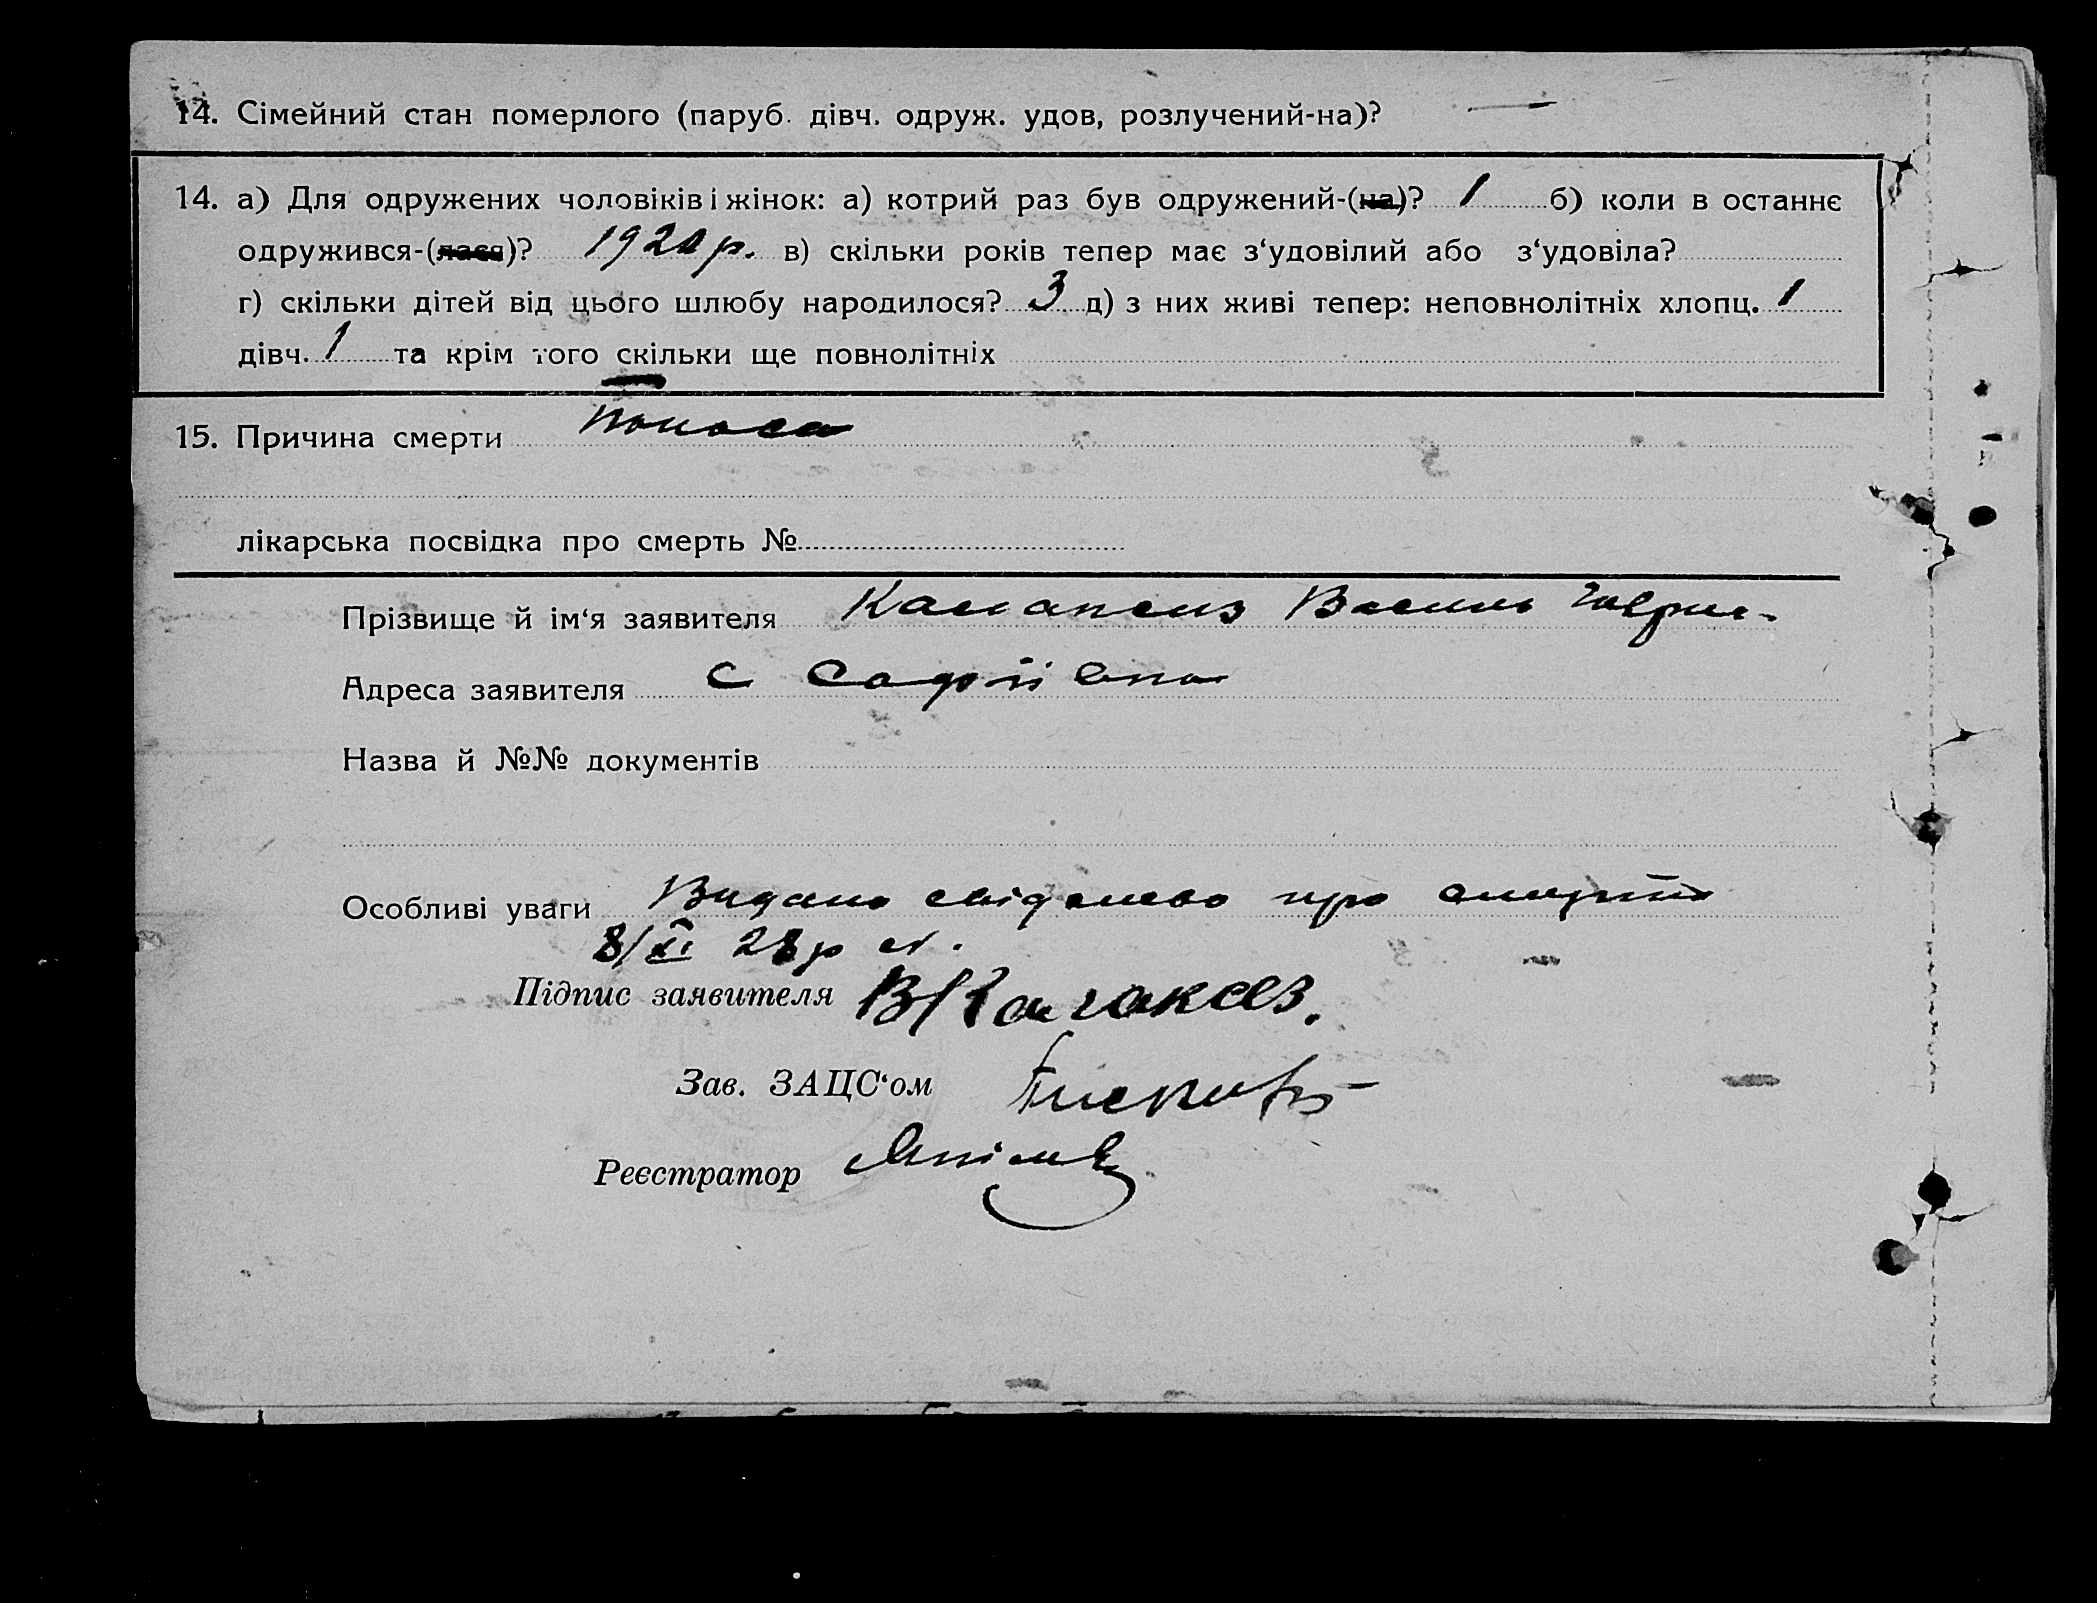 14. Сімейний стан померлого (паруб. дівч. одруж. удов, розлучений-на)? —
14. а) Для одружених чоловіків і жінок: а) котрий раз був одружений-(на)? 1 б) коли в останнє
одружився-(лася)? 1920 р. в) скільки років тепер має з‘удовілий або з‘удовіла?
г) скільки дітей від цього шлюбу народилося? 3 д) з них живі тепер: неповнолітніх хлопц. 1
дівч. 1 та крім того скільки ще повнолітніх
15. Причина смерти
лікарська посвідка про смерть №
Прізвище й ім‘я заявителя Василь
Адреса заявителя с Софіївка
Назва й №№ документів
Особливі уваги Видано свідоцтво про смерть
8/XI 28 р
Підпис заявителя
Зав. ЗАЦС‘ом
Реєстратор